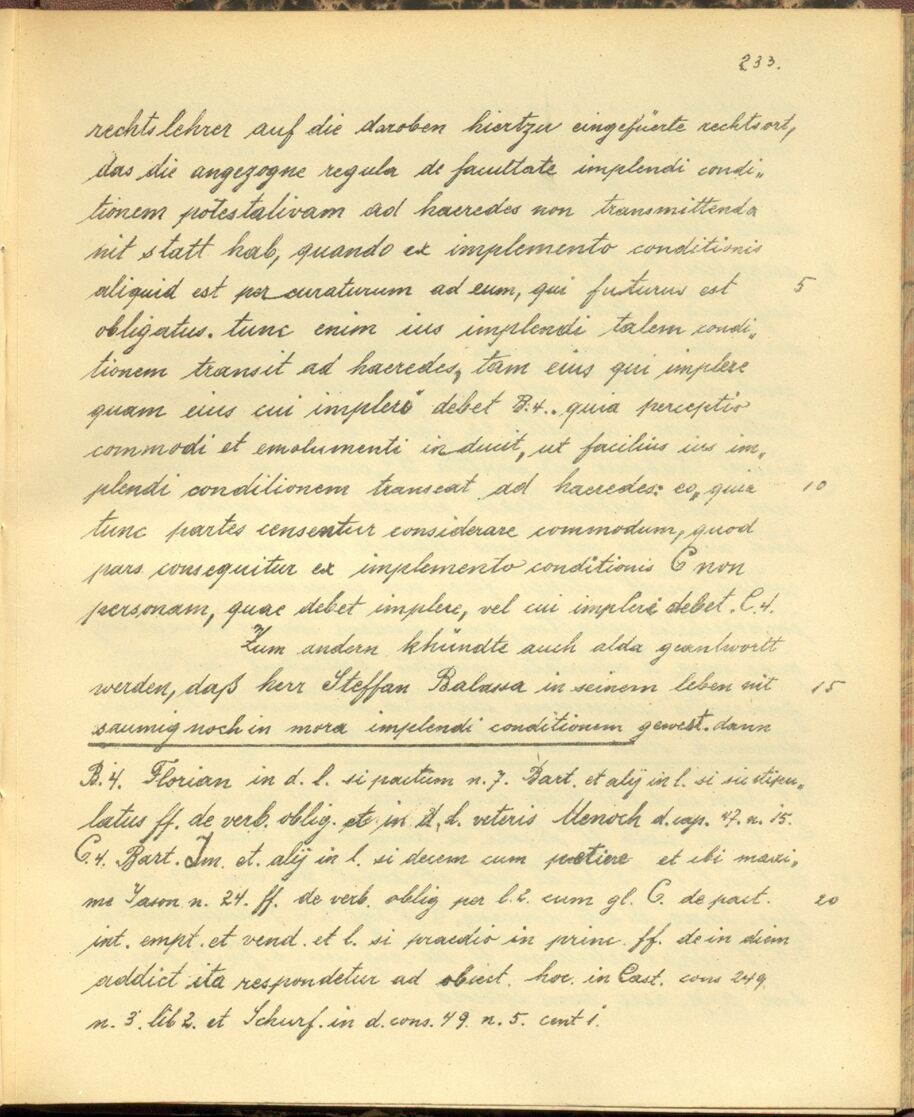 233.
rechtslehrer auf die daroben hiertzu eingefüerte rechtsort,
das die angezogne regula de facultate implendi condi„
tionem potestativam ad haeredes non transmittenda
nit statt hab, quando ex implemento conditionis
aliquid est per curaturum ad eum, qui futurus est 5
obligatus. tunc enim ius implendi talem condi„
tionem transit ad haeredes, tam eius qui implere
quam eius cui impleri debet B.4. quia perceptio
commodi et emolumenti induit, ut facilius ius im„
plendi conditionem transeat ad haeredes: eo, quia 10
tunc partes censentur considerare commodum, quod
pars consequitur ex implemento conditionis C non
personam, quae debet implere, vel cui impleri debet. C.4.
Zum andern khündte auch alda geantwortt
werden, daß herr Steffan Balassa in seinem leben nit 15
saumig noch in mora implendi conditionem gewest. dann
B.4. Florian in d. l. si pactum n. 7. Bart. et alij in l. si sic stipu„
latus ff. de verb. oblig. et in d. d. veteris Menoch d. cap. 47. n. 15.
C.4. Bart. Im. et. alij in l. si decem cum petiere et ibi maxi„
me Jason n. 24. ff. de verb. oblig per l. 2. cum gl. C. de pact. 20
int. empt. et vend. et l. si praedio in princ. ff. de in diem
addict ita respondetur ad obiect. hoc. in Cast. cons 249
n. 3. lib 2. et Schurf. in d. cons. 49. n. 5. cent 1.